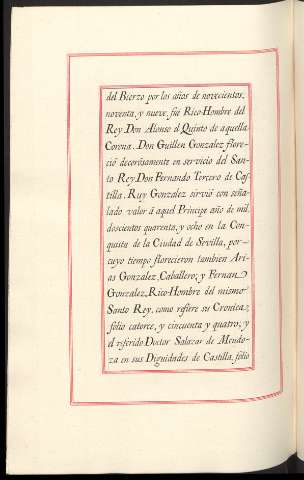 del Bierzo por los años de novecientos,
noventa, y nueve, fué Rico-Hombre del
Rey Don Alonso el Quinto de aquella
Corona. Don Guillen Gonzalez flore-
ció decorosamente en servicio del San-
to Rey Don Fernando Tercero de Cas-
tilla. Ruy Gonzalez sirvió con seña-
lado valor á aquel Principe año de mil,
doscientos quarenta, y ocho en la Con-
quista de la Ciudad de Sevilla, por
cuyo tiempo florecieron tambien Ari-
as Gonzalez, Caballero; y Fernan
Gonzalez, Rico-Hombre del mismo
Santo Rey, como refiere su Cronica,
folio catorce, y cincuenta y quatro; y
el referido Doctor Salazar de Mendo-
za en sus Dignidades de Castilla, folio